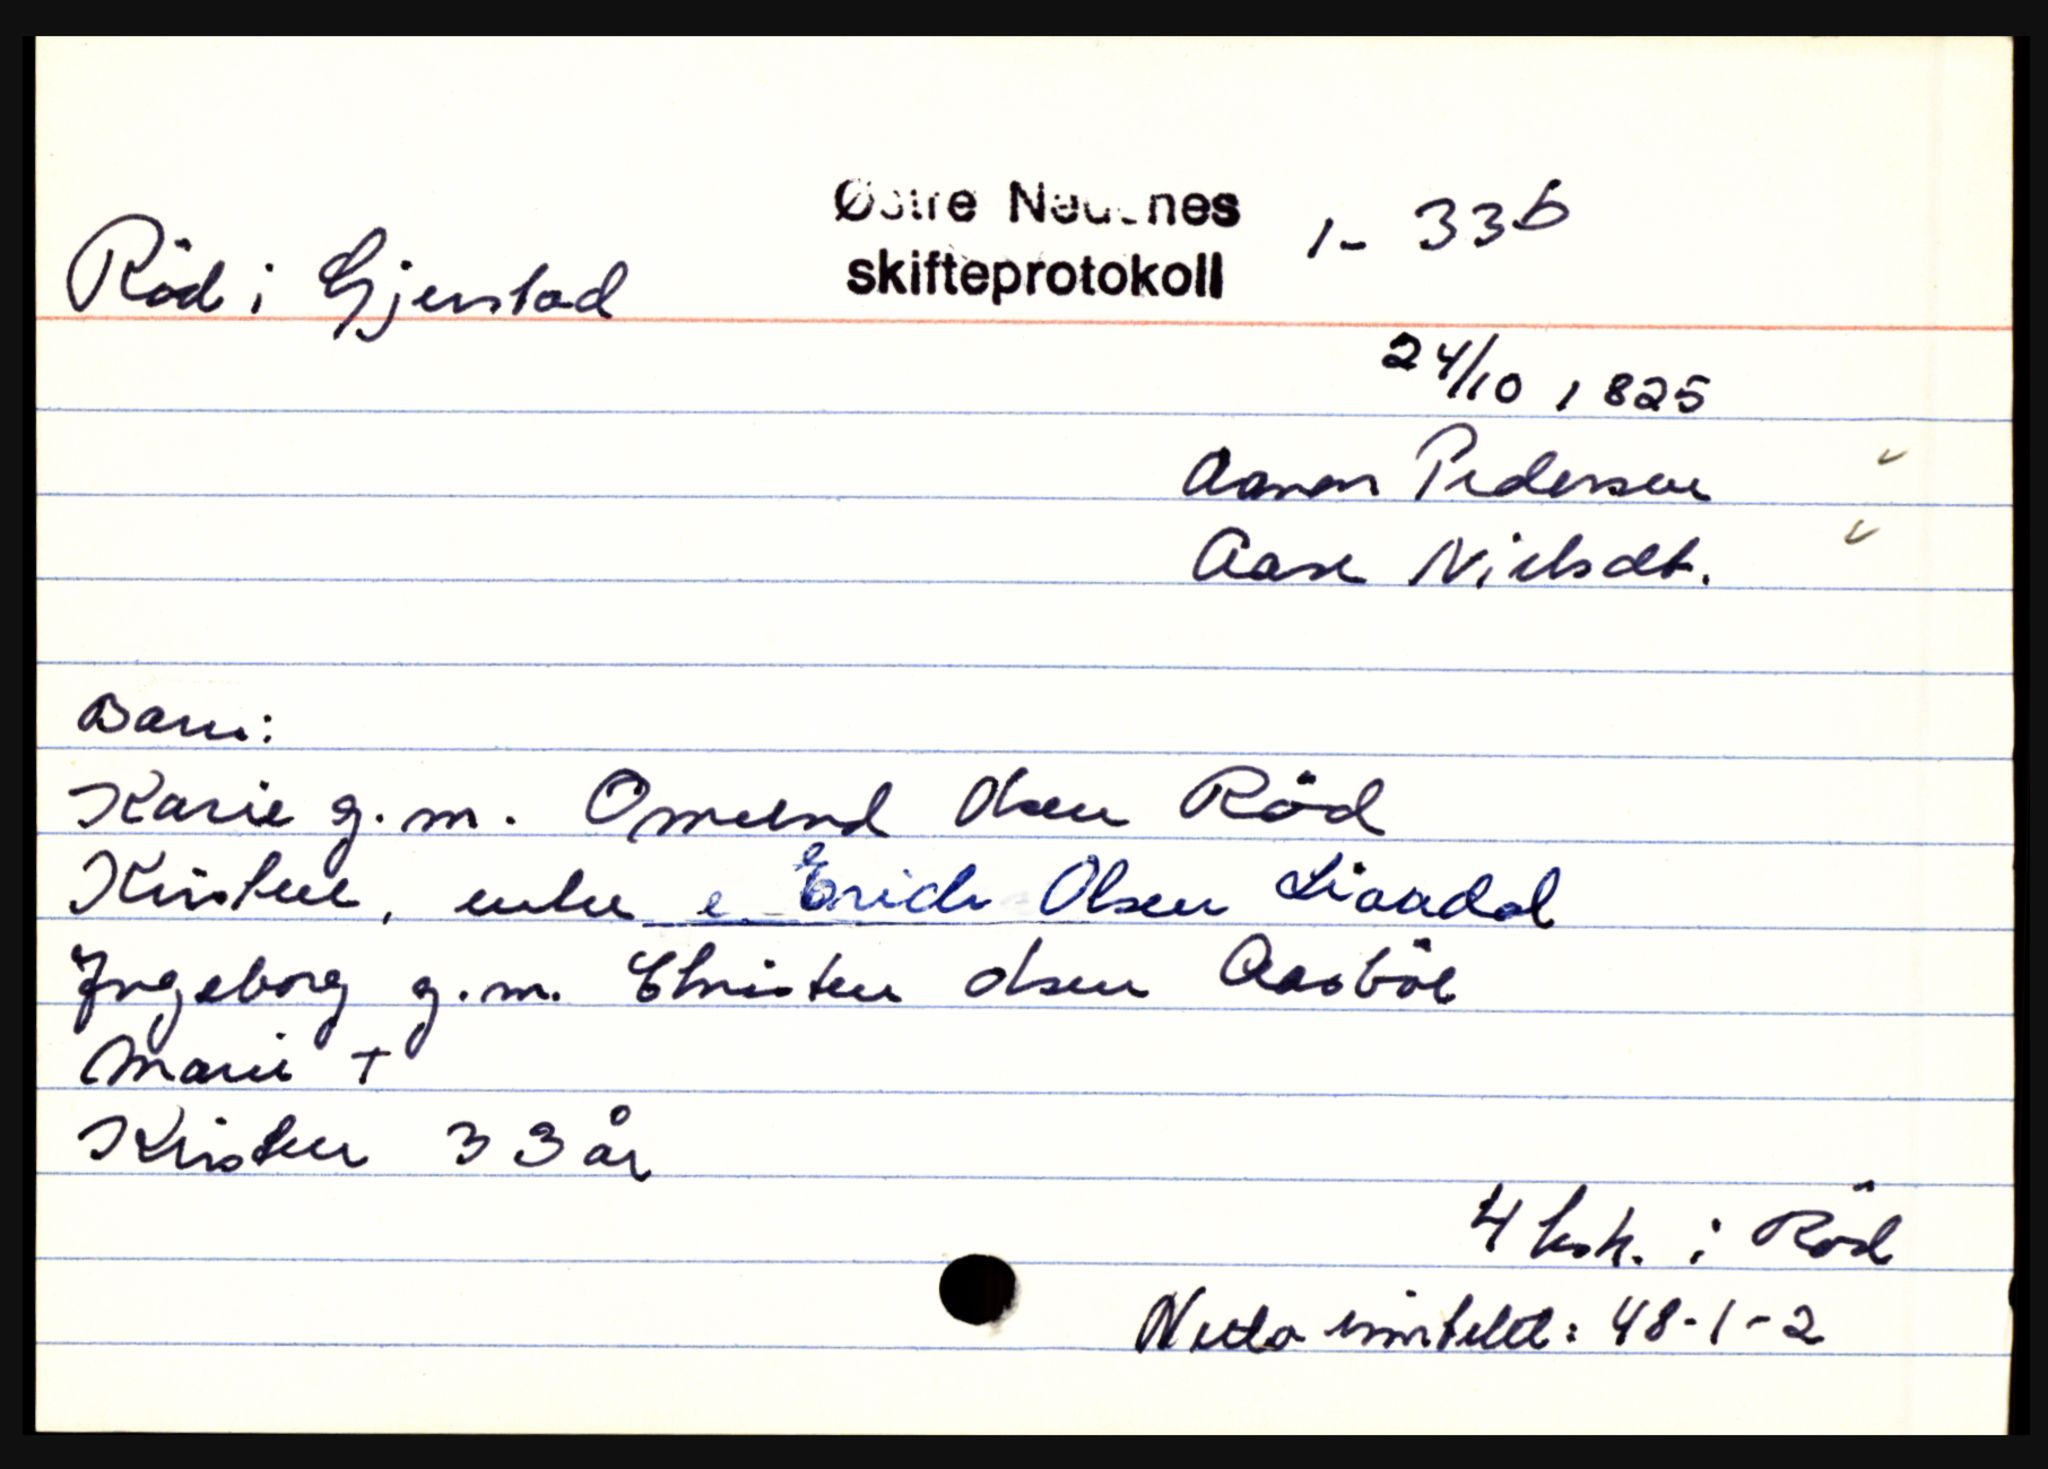 Østre Nedenes 1- 33b
skifteprotokoll
Röd i Gjerstad
24/10 1825
Aanon Pedersen
Aase Nielsdt.
Barn:
Karie g.m. Omund Olsen Röd
Kirstene, enke e Erich Olsen Liaadal
Ingeborg g.m. Christen Olsen Aasböe
Marie †
Kirsten 33 år
4 hsk. i Röd
Netto 48-1-2